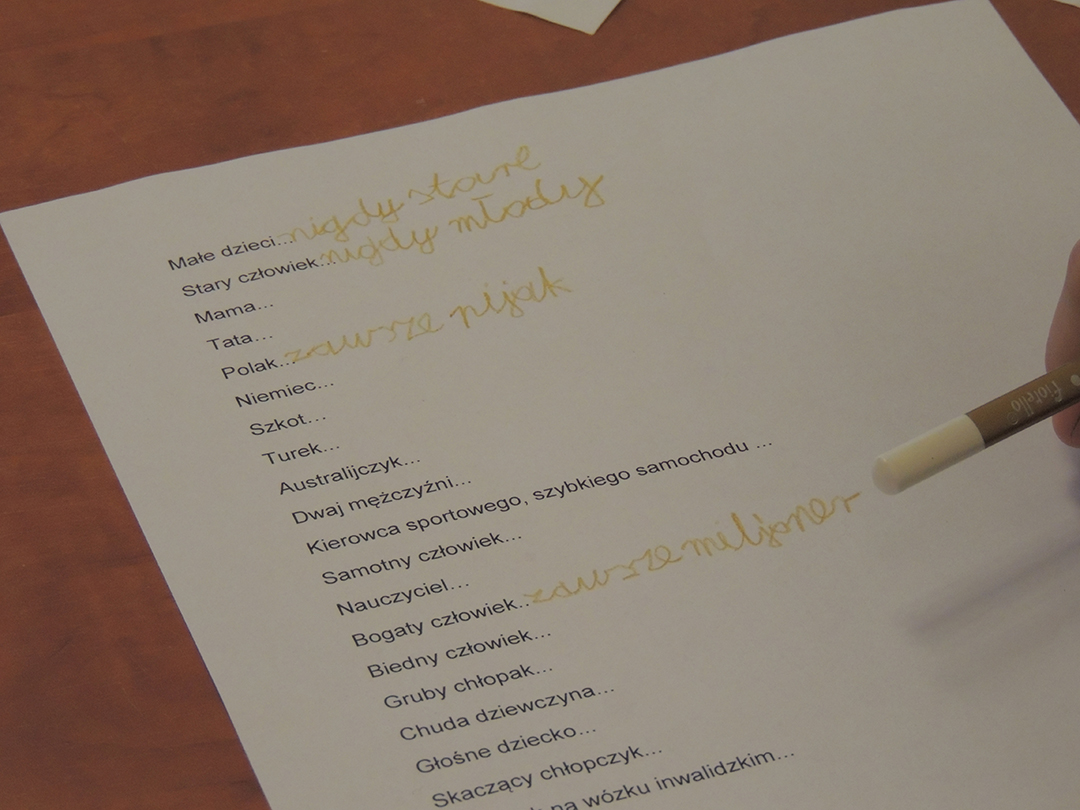 Małe dzieci...nigdy stare
Stary człowiek...nigdy młody
Mama...
Tata...
Polak...zawsze nijak
Niemiec...
Szkot...
Turek...
Australijczyk...
Dwaj mężczyźni...
Kierowca sportowego, szybkiego samochodu ...
Samotny człowiek...
Nauczyciel...
Bogaty człowiek...zawsze miljoner
Biedny człowiek...
Gruby chłopak...
Chuda dziewczyna...
Głośne dziecko...
Skaczący chłopczyk...
na wózku inwalidzkim...
Fiorello